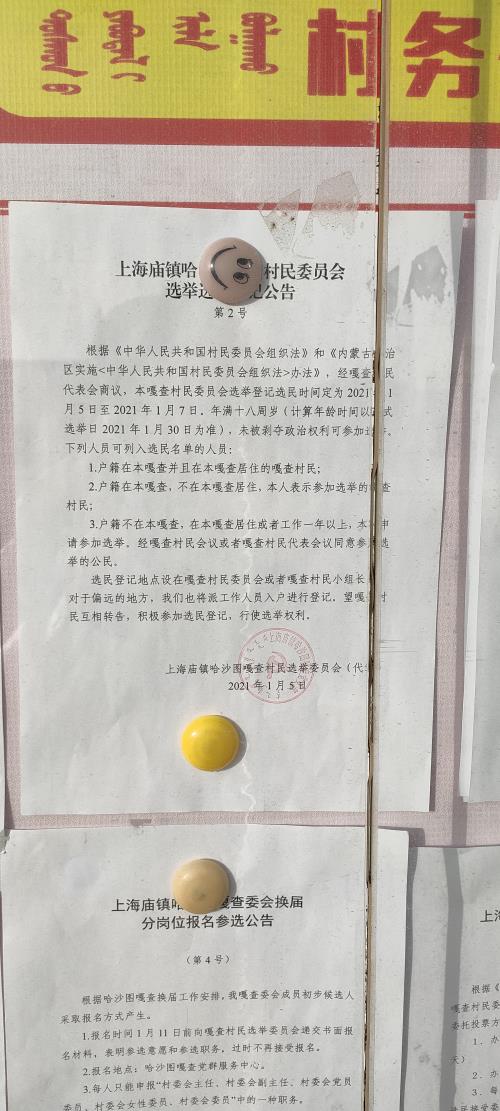 村务
上海庙镇哈 村民委员会
选举 公告
第 2 号
根据《中华人民共和国村民委员会组织法》和《内蒙古 治
区实施<中华人民共和国村民委员会组织法>办法》，经嘎查 民
代表会商议，本嘎查村民委员会选举登记选民时间定为 2021 1
月 5 日至 2021 年 1 月 7 日。年满十八周岁（计算年龄时间以 式
选举日 2021 年 1 月 30 日为准），未被剥夺政治权利可参加
下列人员可列入选民名单的人员：
1.户籍在本嘎查并且在本嘎查居住的嘎查村民；
2.户籍在本嘎查，不在本嘎查居住，本人表示参加选举的 查
村民；
3.户籍不在本嘎查，在本嘎查居住或者工作一年以上，本 申
请参加选举。经嘎查村民会议或者嘎查村民代表会议同意参 选
举的公民。
选民登记地点设在嘎查村民委员会或者嘎查村民小组长
对于偏远的地方，我们也将派工作人员入户进行登记。望嘎 村
民互相转告，积极参加选民登记，行使选举权利。
上海庙镇哈沙图嘎查村民选举委员会（代
2021 年 1 月 5 日
上海庙镇哈 嘎查委会换届
分岗位报名参选公告
（第 4 号）
根据哈沙图嘎查换届工作安排，我嘎查委会成员初步候选人
采取报名方式产生。
1.报名时间 1 月 11 日前向嘎查村民选举委员会递交书面报
名材料，表明参选意愿和参选职务。过时不再接受报名。
2.报名地点：哈沙图嘎查党群服务中心。
3.每人只能申报“村委会主任、村委会副主任、村委会党员
委员、村委会女性委员、村委会委员”中的一种职务。
上海
根据《
嘎查村民委
委托投票方
1．办
天）
2．办
3．每
民接受委